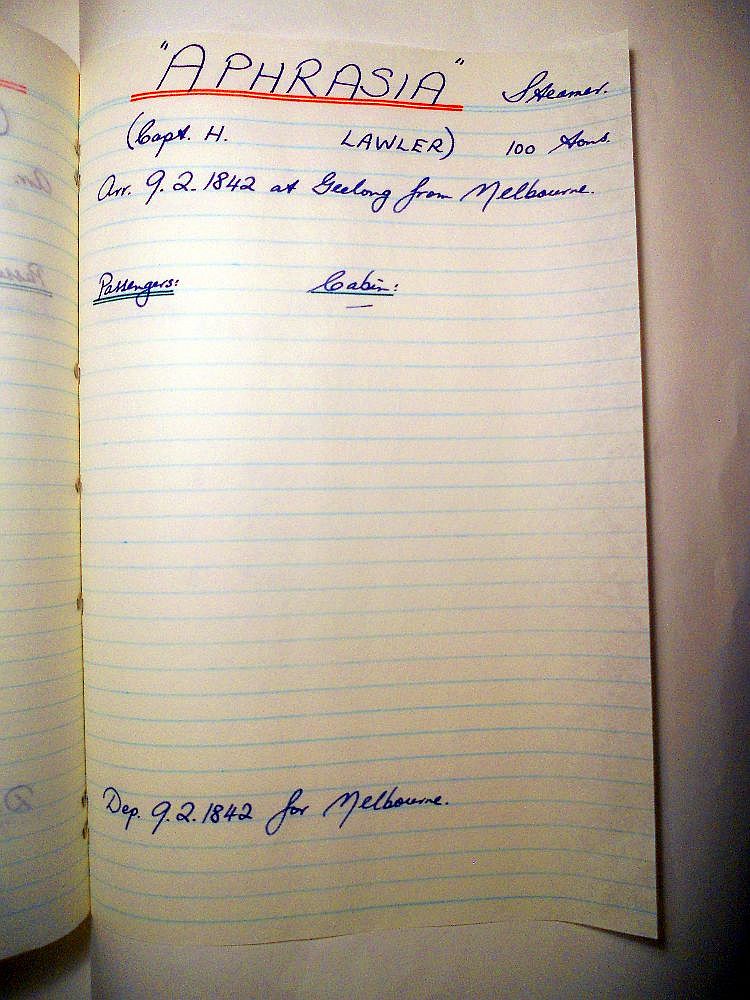 "APHRASIA" Steamer.
(Capt. H. LAWLER) 100 Tons.
Arr. 9.2.1842 at Geelong from Melbourne.
Passengers: Cabin:
—
Dep. 9.2.1842 for Melbourne.